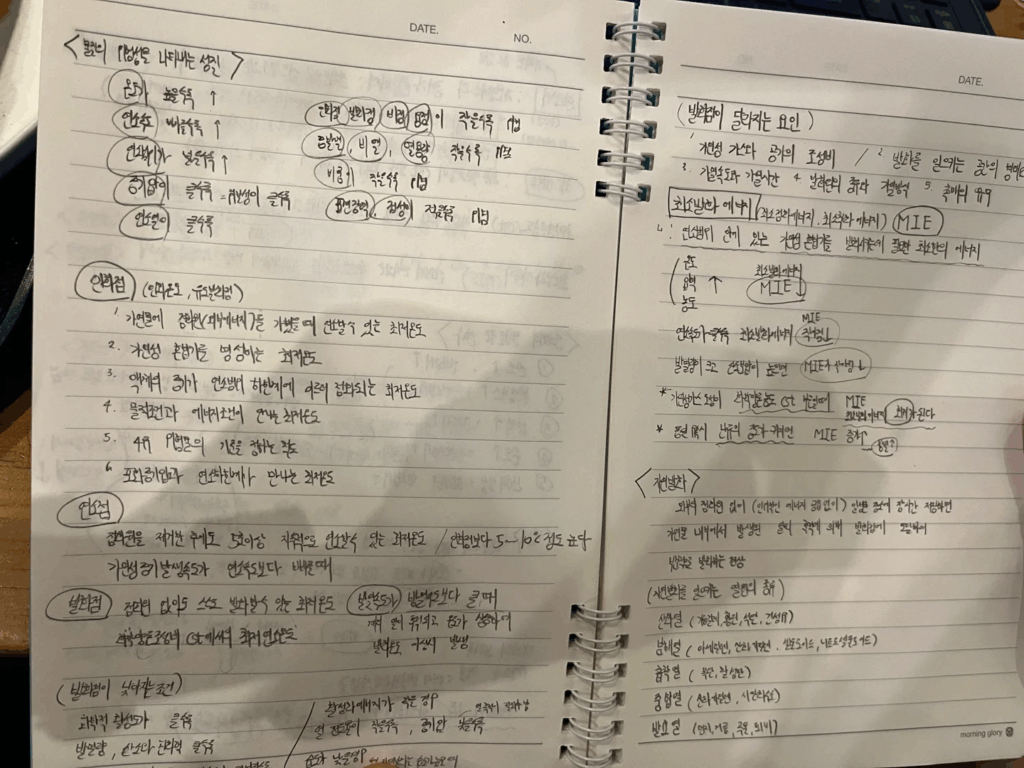 DATE.
NO.
<물질의 위험성을 나타내는 성질>
온도가 높을수록 ↑
연소속도 빠를수록 ↑
연소범위가 넓을수록 ↑
증기압이 클수록 = 휘발성이 클수록
연소열이 클수록
인화점 발화점 비점 융점이 작을수록 위험
증발열, 비열, 열용량 작을수록 위험
비중 작을수록 위험
표면장력, 점성이 작을수록 위험
인화점 (인화온도, 유도발화점)
1. 가연물에 점화원(외부에너지)를 가했을때 연소할수 있는 최저온도
2. 가연성 혼합기를 형성하는 최저온도
3. 액체의 증기가 연소범위 하한계에 이르러 점화되는 최저온도
4. 물적조건과 에너지조건이 만나는 최저온도
5. 4류 위험물의 기준을 정하는 척도
6. 포화증기압과 연소하한계가 만나는 최저온도
연소점
점화원을 제거한 후에도 5초이상 지속적으로 연소할수 있는 최저온도 / 인화점보다 5~10℃ 정도 높다
가연성 증기 발생속도가 연소속도보다 빠를때
발화점 점화원 없이도 스스로 발화할수 있는 최저온도
에서의 최저연소온도
발열속도가 방열속도보다 클때
(발화점이 낮아지는 조건)
화학적 활성도가 클수록
발열량, 클수록
활성화에너지가 작은 경우
열전도율이 작을수록, 증기압 낮을수록
습도 낮을경우
DATE.
(발화점이 달라지는 요인)
1. 가연성 가스와 공기의 조성비 / 2. 발화를 일으키는 공간의 형태와
3. 가열속도와 가열시간 4. 발화원의 종류와 가열방식 5. 촉매의 유무
최소발화 에너지 (최소점화에너지, 최소착화에너지) MIE
↳ : 연소범위 안에 있는 가연성 혼합기를 발화시키는데 필요한 최소한의 에너지
온도
압력 ↑
농도
최소발화에너지
MIE ↓
MIE
연소속도가 클수록 최소발화에너지 작아짐↓
발열량이 크고 연소범위 넓으면 MIE가 작아짐↓
MIE
최소발화에너지 최저가 된다
* MIE 증가↑
<자연발화>
외부의 점화원 없이 (인위적인 에너지 공급 없이) 일정한 온도에 장시간 저장하면
가연물 내부에서 발생된 열의 축적에 의해 발화점에 도달하여
발화하는 현상
(자연발화를 일으키는 열원의 종류)
산화열 (기름, 석탄, 건성유)
분해열 (아세틸렌, 산화에틸렌, 셀룰로이드, 니트로셀룰로오드)
흡착열 (목탄, 활성탄)
중합열 (산화에틸렌, 시안화수소)
발효열 (먼지, 거름, 곡물, 퇴비)
morning glory